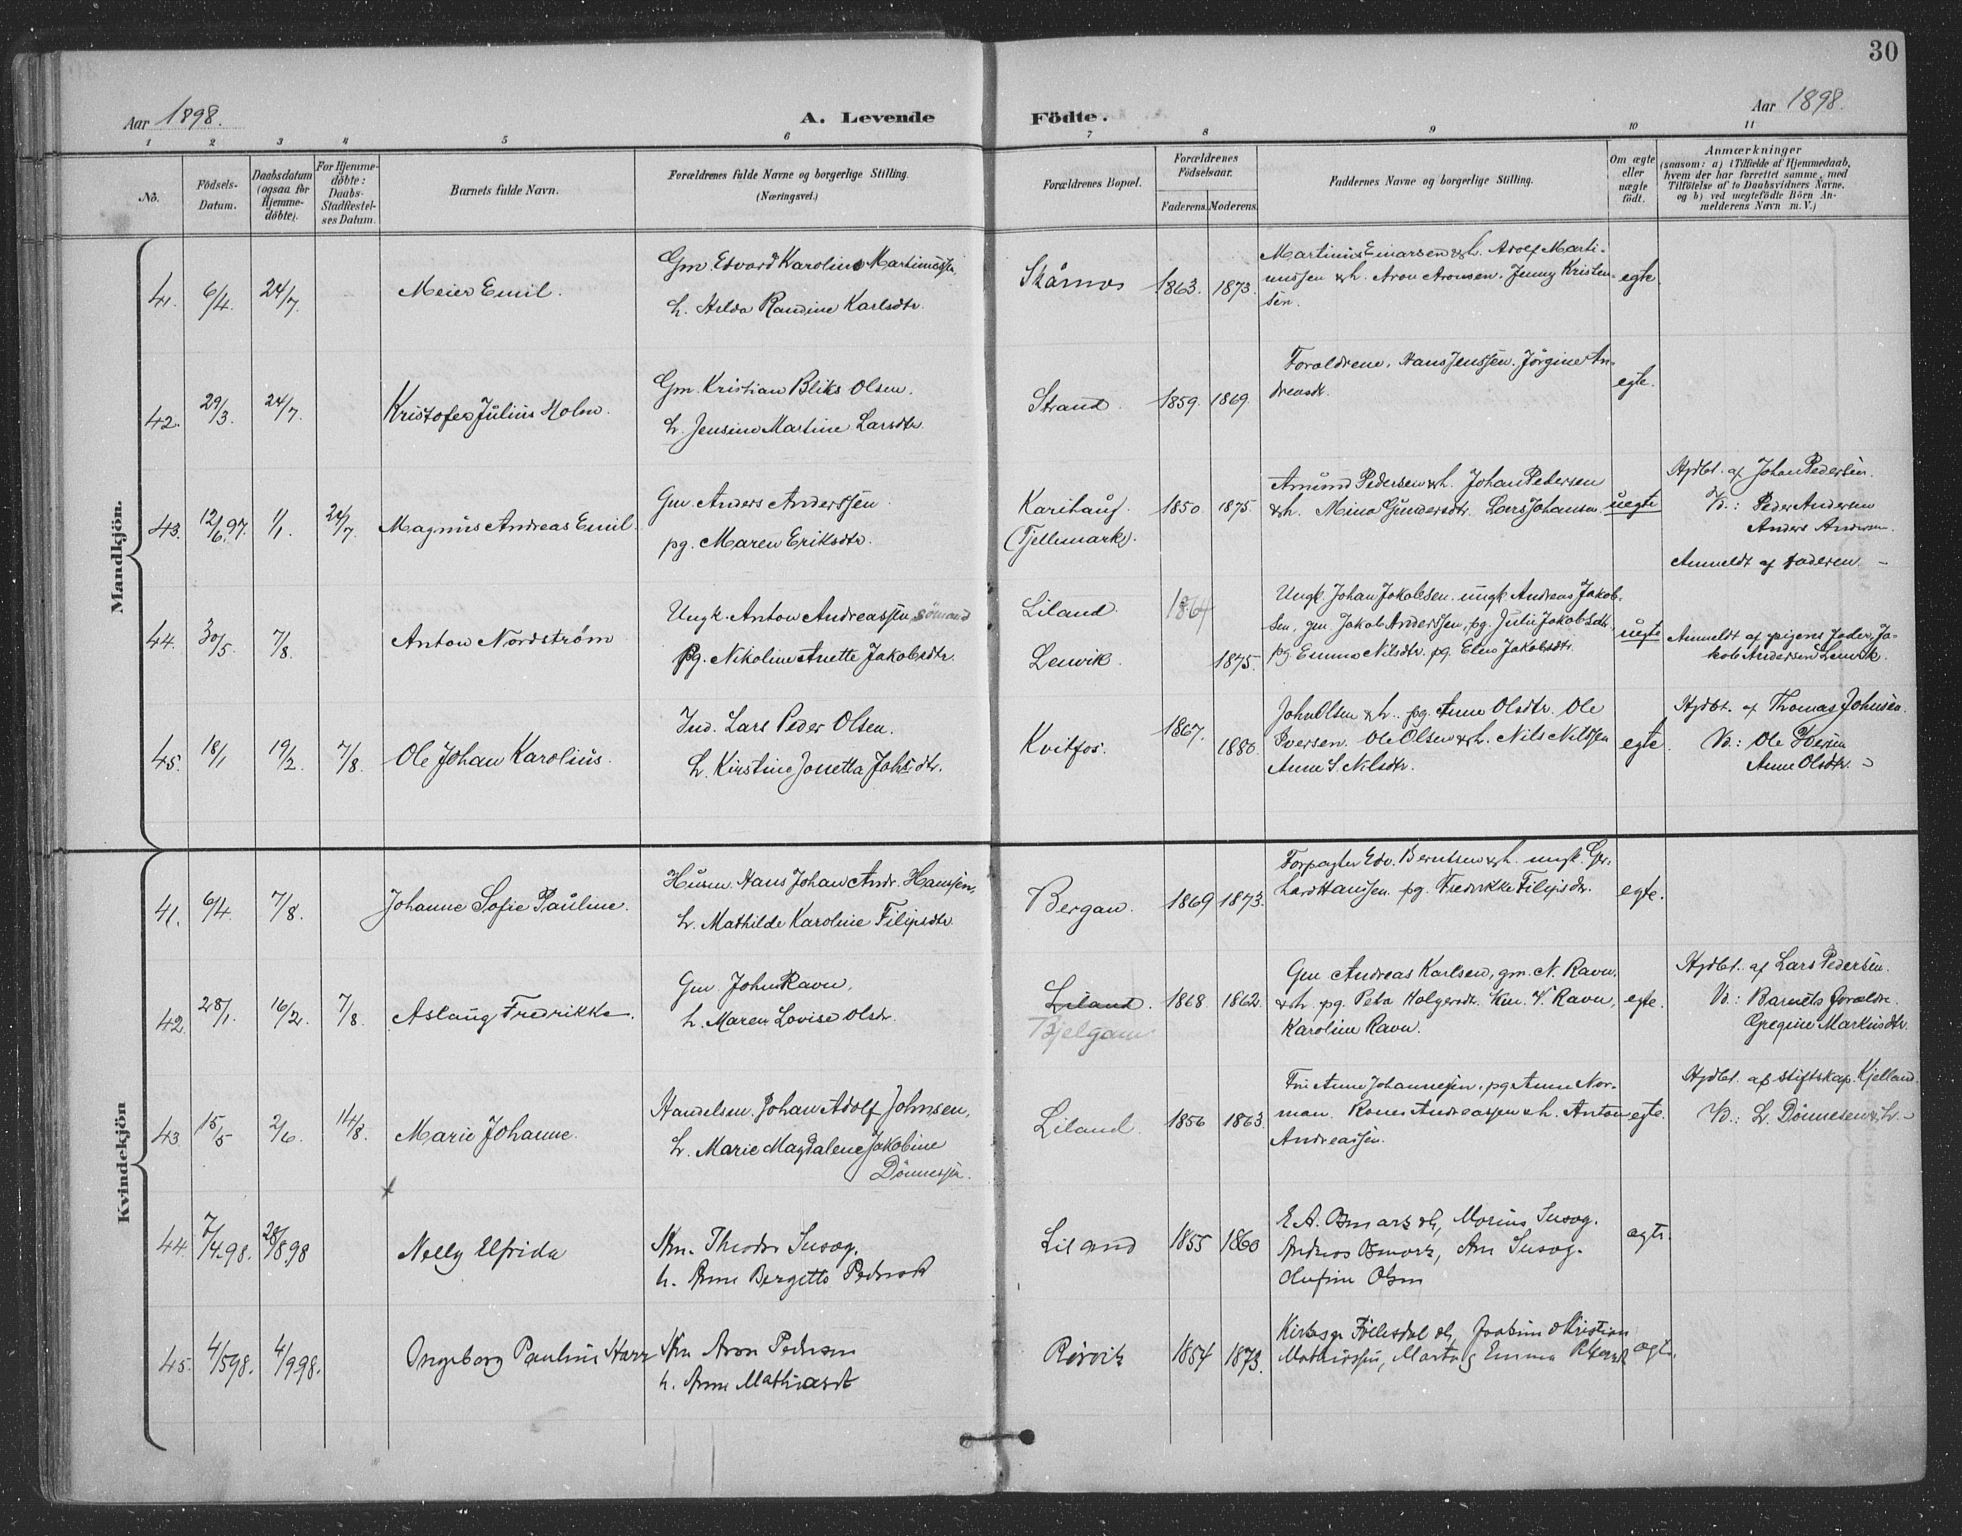 30
Aar 1898.
A. Levende
Födte.
Aar 1898.
1 2 3 4 5 6 7 8 9 10 11
No.
Födsels-
Datum.
Daabsdatum
(ogsaa för
Hjemme-
döbte).
For Hjemme-
döbte:
Daabs-
Stadfæstel-
ses Datum.
Barnets fulde Navn.
Forældrenes fulde Navne og borgerlige Stilling.
(Næringsvei.)
Forældrenes Bopæl.
Forældrenes
Födselsaar.
Faderens. Moderens.
Faddernes Navne og borgerlige Stilling.
Om ægte
eller
uægte
födt.
Anmærkninger
(saasom: a) i Tilfælde af Hjemmedaab,
hvem der har forrettet samme, med
Tilföielse af to Daabsvidners Navne.
og b) ved uægtefödte Börn An-
melderens Navn m. V.)
Mandkjön.
41. 6/4. 24/7. Meier Emil.
Gm. Edvard Karolius Martinussen,
h. Hilda Randine Karlsdtr.
Skånnes 1863. 1873.
Martinus Einarsen & h. Adolf Marti-
nussen & h. Aron Aronsen. Jenny Kristen-
sen.
egte.
42. 29/3. 24/7. Kristofer Julius Holm.
Gm. Kristian Bliks Olsen.
h. Jensine Martine Larsdtr.
Strand. 1859. 1869.
Foreldrene. Hans Jenssen. Jørgine An-
dreasdtr.
egte.
43. 12/6.97. 1/1. 24/7. Magnus Andreas Emil.
Gm Anders Anderssen.
pg. Maren Eriksdtr.
Karihaug.
(Tjellemark).
1850 1875.
Amund Pedersen & h. Johan Pedersen
& h. Mina Gundersdtr. Lars Johansen.
uegte
Hjdbt. af Johan Pedersen.
V.: Peder Andersen
Anders Andersen.
Anmeldt af faderen –
44. 30/5. 7/8. Anton Nordstrøm
Ungk. Anton Andreassen, sömand
pg. Nikoline Anette Jakobsdtr.
Liland. 1864
Lenvik. 1875.
Ungk. Johan Jakobsen. ungk Andreas Jakob-
sen, gm Jakob Anderssen, pg. Julie Jakobsdtr,
pg. Emma Nilsdtr. pg. Elen Jakobsdtr.
uegte
Anmeldt af pigens fader, Ja-
kob Andersen Lenvik.
45. 18/1. 19/2. 7/8. Ole Johan Karolius.
Ind. Lars Peder Olsen.
h. Kirstine Josetta Johsdtr.
Kvitfos. 1867. 1880.
John Olsen & h. pg. Anne Olsdtr. Ole
Iversen. Ole Olsen & h. Nils Nilssen
Anne S. Nilsdtr.
egte.
Hjdbt. af Thomas Johnsen.
V.: Ole Iversen
Anne Olsdtr. –
Kvindekjön
41. 6/4. 7/8. Johanne Sofie Pauline.
Husm. Hans Johan Andr. Hanssen,
h. Mathilde Karoline Filipsdtr.
Bergan. 1869 1873.
Forpagter Edv. Berntsen & h. ungk. Ger-
hard Hanssen. pg. Fredrikke Filipsdtr.
egte.
42. 28/1. 16/2. 7/8. Aslaug Fredrikke.
Gm John Ravn,
h. Maren Lovise Olsdtr.
Liland.
1868. 1862.
Gm Andreas Karlsen, gm. N. Ravn.
& h. pg. Peta Holgersdtr. Km. V. Ravn,
Karoline Ravn.
egte.
Hjdbt. af Lars Pedersen.
V.: Barnets foreldre.
Gregine Markusdtr.
43. 15/5. 2/6. 14/8. Marie Johanne.
Handelsm. Johan Adolf Johnsen,
h. Marie Magdalene Jakobine
Dönnessen.
Liland. 1856 1863.
Fru Anne Johannesen. pg Anne Nor-
man. Rones Andreassen & h. Anton
Andreassen.
egte.
Hjdbt. af stiftskap. Kjelland.
V.: L. Dönnesen & h. –
44. 7/4.98. 28/8.98 Nelly Elfrida
Km. Theodor
h. Anne Bergitte Pedersdt
Liland 1855 1860
Andreas
Olufine Olsen
ægte.
45. 4/5 98. 4/9.98. Ingeborg Pauline
Km Aron Pedersen
h. Anne Mathiasdt
Rørvik 1854 1873.
Kirkesgr Föllesdal & h, Joakim & Kristian
Mathiassen, Marta & Emma
ægte.